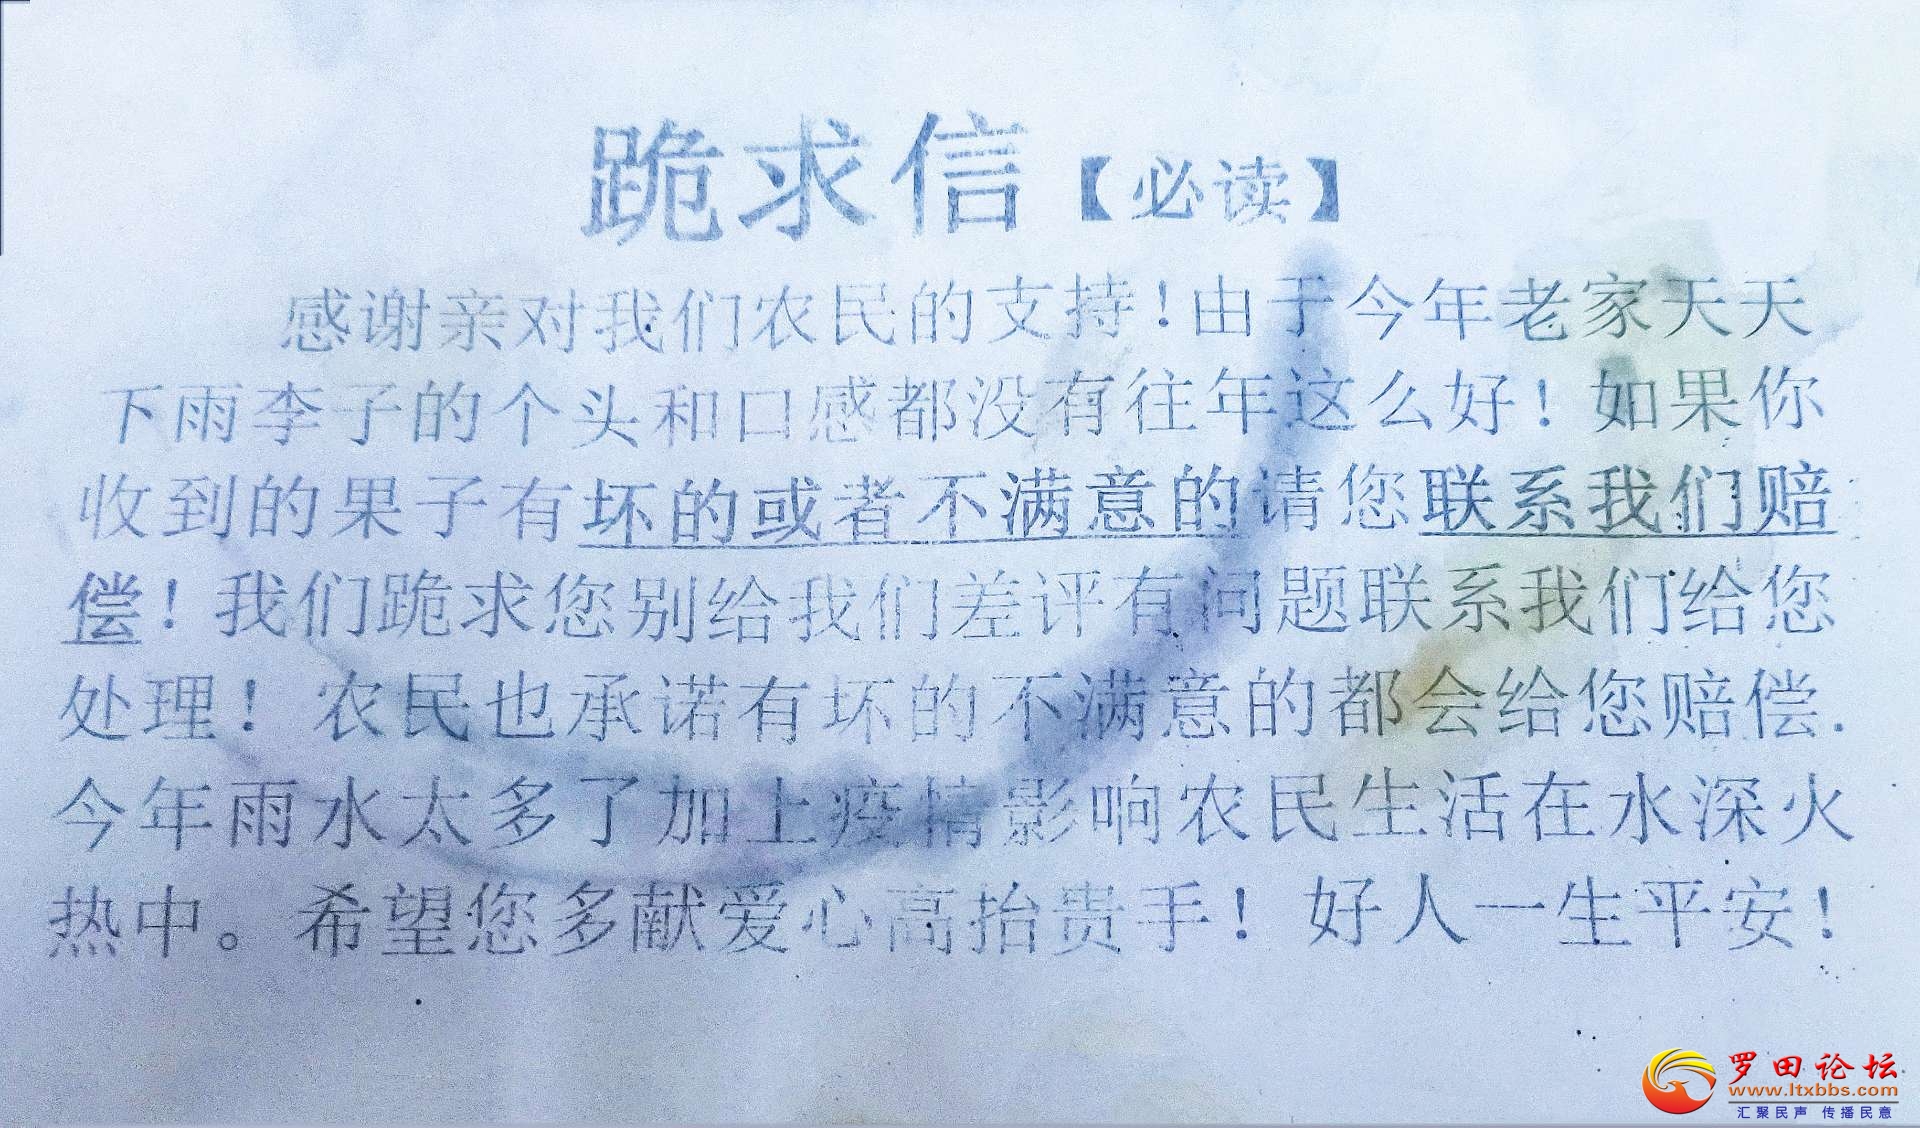 跪求信【必读】
感谢亲对我们农民的支持!由于今年老家天天
下雨李子的个头和口感都没有往年这么好!如果你
收到的果子有坏的或者不满意的请您联系我们赔
偿!我们跪求您别给我们差评有问题联系我们给您
处理!农民也承诺有坏的不满意的都会给您赔偿.
今年雨水太多了加上疫情影响农民生活在水深火
热中。希望您多献爱心高抬贵手!好人一生平安!
罗田论坛
www.ltxbbs.com
汇聚民声 传播民意